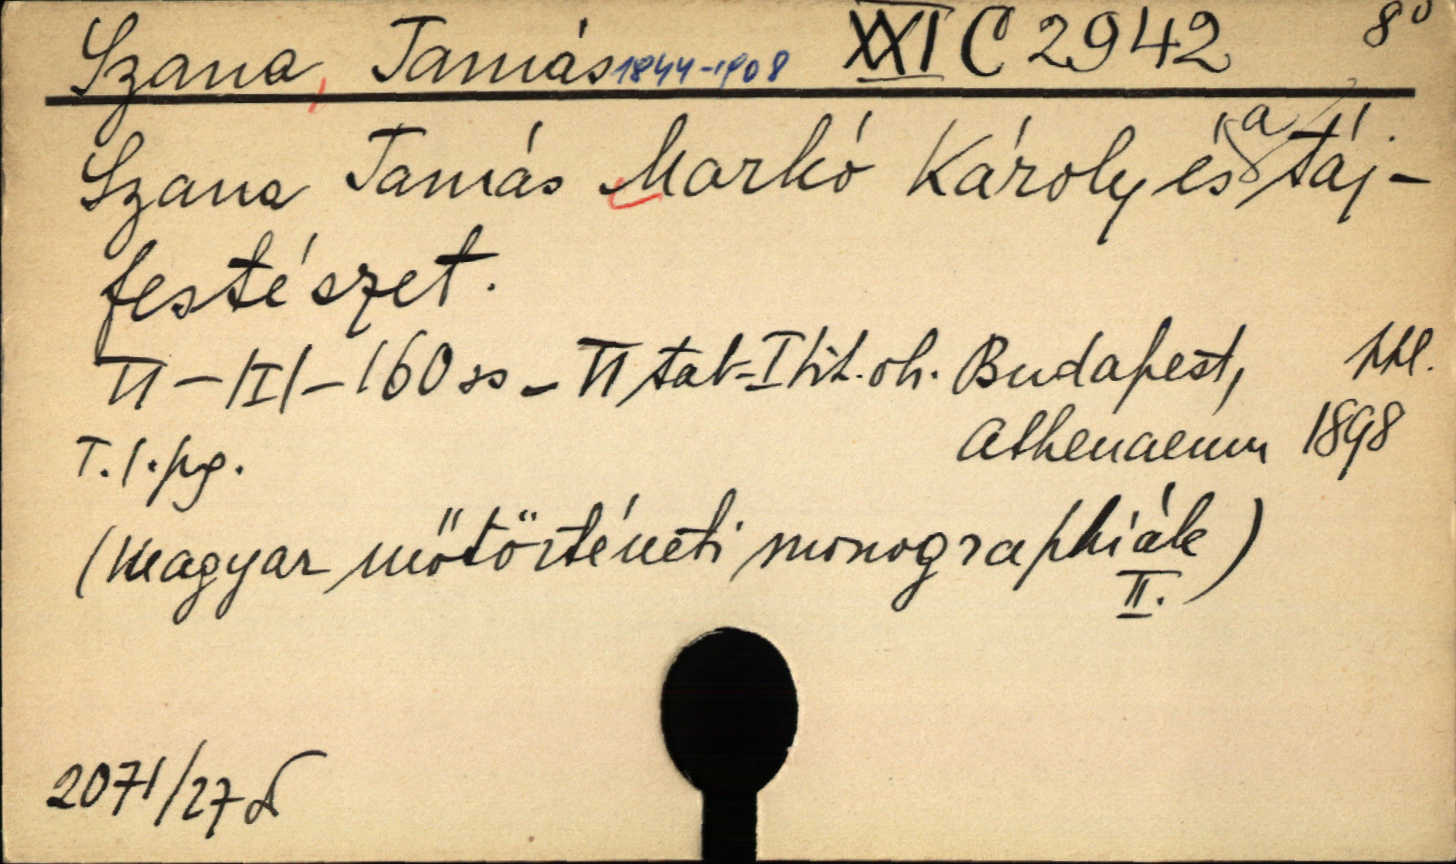 Szana, Tamás 1844-1908 XXI C 2942 8°
Szana Tamás Markó Károly és a táj-
festészet.
II-/I/-160 ss - II tab-I tit. oh. Budapest,
Athenaeum 1898
T. 1. pg.
(Magyar műtörténeti monographiák)
II.
2071/27